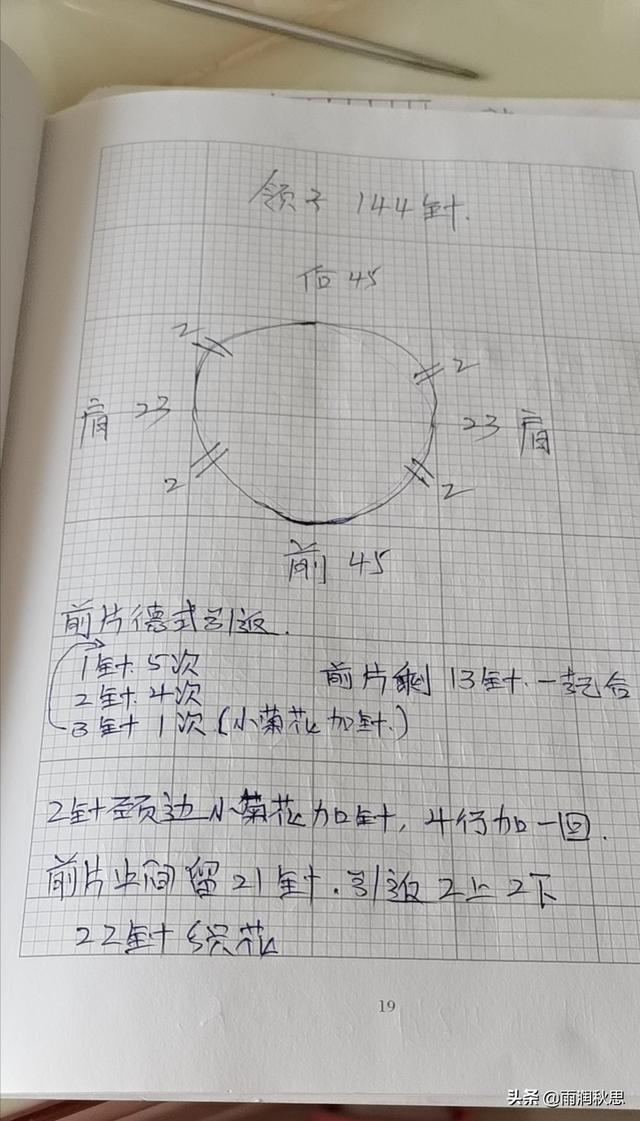 领子 144针.
后 45
2
2
肩 23
23 肩
2
2
前 45
前片德式引返.
1针 5次
前片剩 13针.一起合
2针 4次
3针 1次 (小菊花加针.)
2针颈边小菊花加针, 4行加一回.
前片中间留 21针.引返 2上 2下
22针 织花
19
头条 @雨润秋思